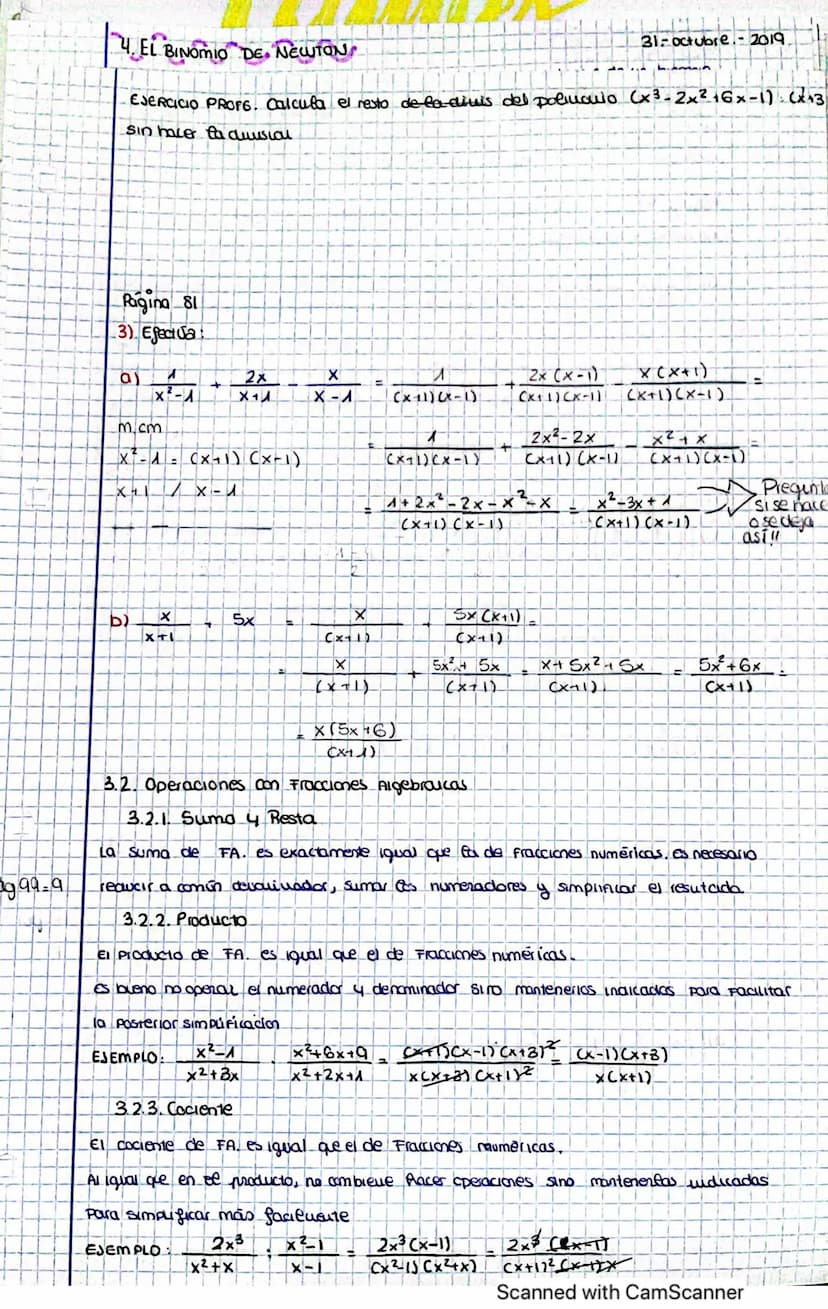 4. EL BINOMIO DE NEWTON
31-octubre.-2019
EJERCICIO PROFE. Calcula el resto del (x³-2x²+6x-1):(x+3
sin hacer la
Página 81
3) Efectúa:
a) 1/(x²-1) + 2x/(x+1) - x/(x-1) = 1/((x+1)(x-1)) + 2x(x-1)/((x+1)(x-1)) - x(x+1)/((x+1)(x-1)) =
m.cm
= 1/((x+1)(x-1)) + (2x²-2x)/((x+1)(x-1)) - (x²+x)/((x+1)(x-1)) =
x²-1 = (x+1)(x-1)
x+1 / x-1
= (1+2x²-2x-x²-x)/((x+1)(x-1)) = (x²-3x+1)/((x+1)(x-1))
si se hace
o se deja
así!!
b) x/(x+1) + 5x = x/(x+1) + 5x(x+1)/(x+1) =
= x/(x+1) + (5x²+5x)/(x+1) = (x+5x²+5x)/(x+1) = (5x²+6x)/(x+1) =
= x(5x+6)/(x+1)
3.2. Operaciones con Fracciones Algebraicas
3.2.1. Suma y Resta
La suma de FA. es exactamente igual que la de fracciones numéricas. es necesario
reducir a común denominador, sumar los numeradores y simplificar el resultado
3.2.2. Producto
El Producto de FA. es igual que el de Fracciones numéricas.
es bueno no operar el numerador y denominador sino mantenerlos indicados para facilitar
la posterior simplificacion
EJEMPLO: (x²-1)/(x²+3x) · (x²+6x+9)/(x²+2x+1) = (x+1)(x-1)(x+3)²/(x(x+3)(x+1)²) = (x-1)(x+3)/(x(x+1))
3.2.3. Cociente
El cociente de FA. es igual que el de Fracciones numéricas.
Al igual que en el producto, no hacer operaciones sino mantenerlas indicadas
para simplificar más facilmente
EJEMPLO: 2x³/(x²+x) : (x²-1)/(x-1) = 2x³(x-1)/((x²-1)(x²+x)) =
Scanned with CamScanner